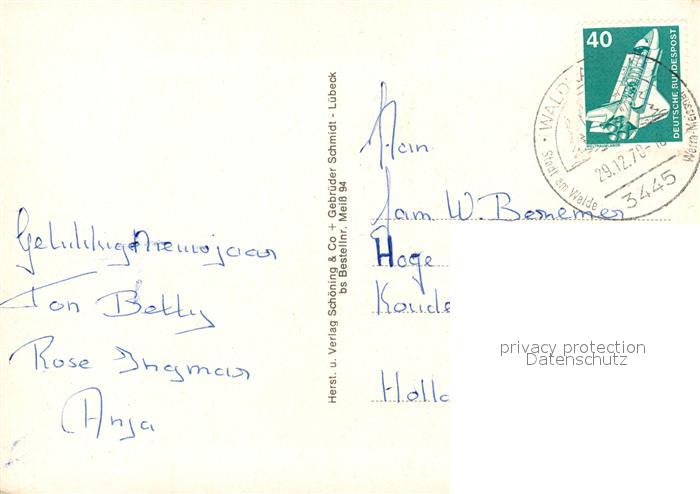 Gelukkig nieuwjaar
Ton Betty
Rose Ingmar
Anja
Herst. u. Verlag Schöning & Co + Gebrüder Schmidt - Lübeck
bs Bestellnr. Meiß 94
40
DEUTSCHE BUNDESPOST
WELTRAUMLABOR
WALD
Stadt am Walde
29.12.78-
3445
Aan
Fam W. Benemer
Hoge
Koude
Holla
privacy protection
Datenschutz